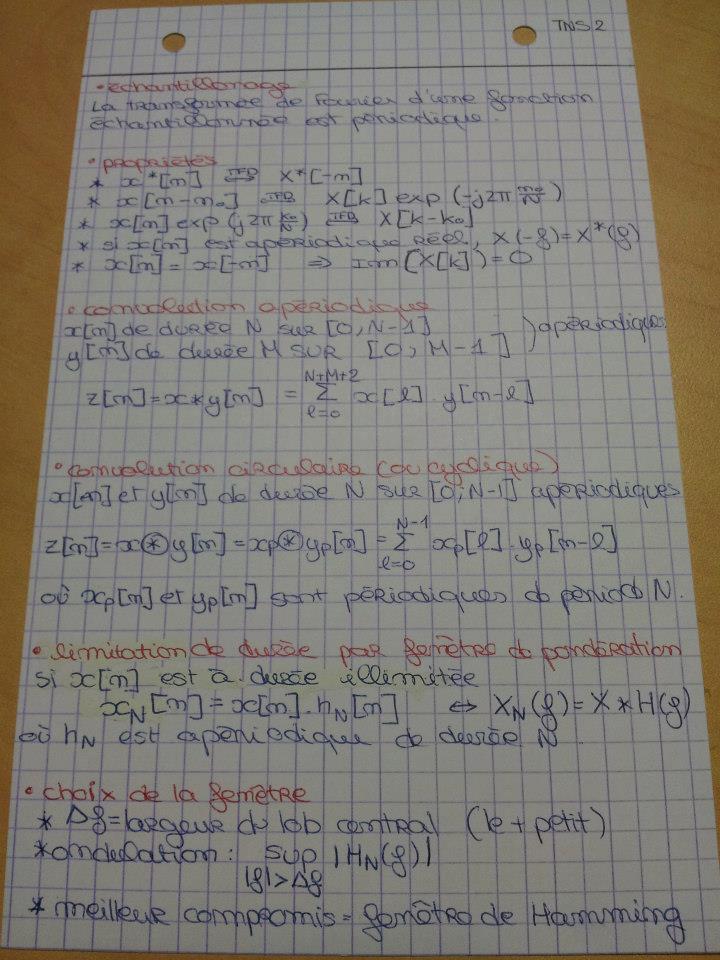 TNS 2
• échantillonage
La transformée de Fourier d'une fonction
échantillonnée est périodique.
• propriétés
* x*[n] ⇌TFD X*[-n]
* x[n-n₀] ⇌TFD X[k] exp (-j2π n₀/N)
* x[n] exp (j2π k₀/N) ⇌TFD X[k-k₀]
* si x[n] est apériodique réel, X(-f) = X*(f)
* x[n] = x[-n] ⇒ Im(X[k]) = 0
• convolution apériodique
x[n] de durée N sur [0, N-1]
y[n] de durée M sur [0, M-1] } apériodiques
z[n] = x*y[n] = Σ_{l=0}^{N+M+2} x[l].y[n-l]
• convolution circulaire (ou cyclique)
x[n] et y[n] de durée N sur [0, N-1] apériodiques
z[n] = x⊛y[n] = xp⊛yp[n] = Σ_{l=0}^{N-1} xp[l].yp[n-l]
où xp[n] et yp[n] sont périodiques de période N.
• limitation de durée par fenêtre de pondération
si x[n] est à durée illimitée
x_N[n] = x[n].h_N[n] ⇔ X_N(f) = X*H(f)
où h_N est apériodique de durée N
• choix de la fenêtre
* Δf = largeur du lob central (le + petit)
* ondulation : sup_{|f|>Δf} |H_N(f)|
* meilleur compromis = fenêtre de Hamming